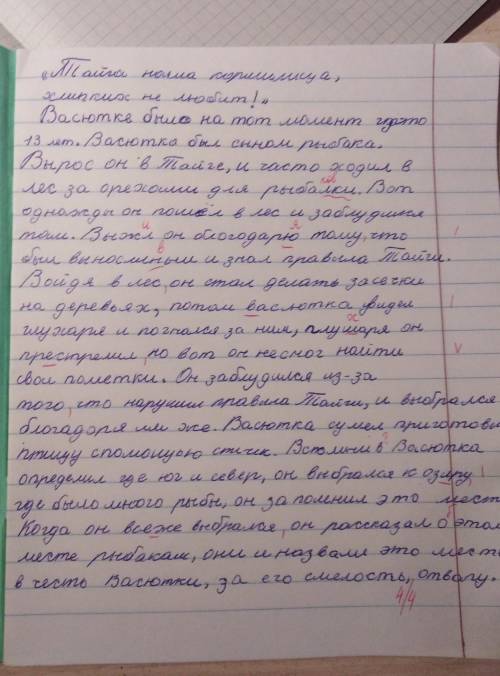 «Тайга наша кормилица,
хлипких не любит!»
Васютке было на тот момент где-то
13 лет. Васютка был сыном рыбака.
Вырос он в Тайге, и часто ходил в
лес за орехами для рыбалки. Вот
однажды он пошёл в лес и заблудился
там. Выжл он благодарю тому, что
был выносмным и знал правила Тайги.
Войдя в лес, он стал делать засечки
на деревьях, потом васютка увидел
глухаря и погнался за ним, глушаря он
престрелил но вот он несмог найти
свои пометки. Он заблудился из-за
того, что нарушил правила Тайги, и выбрался
благодоря им же. Васютка сумел приготови
птицу спомощью спичек. Вспомнил Васютка
определил где юг и север, он выбрался к озеру,
где было много рыбы, он запомнил это мест
Когда он всеже выбрался, он рассказал о этом
месте рыбакам, они и назвали это мест
в честь Васютки, за его смелость, отвагу.
4/4